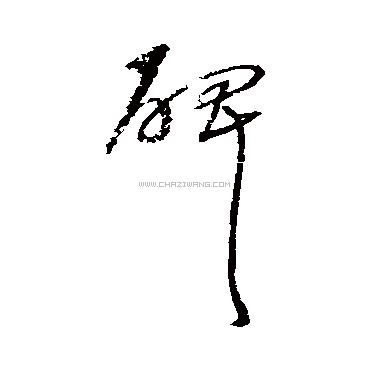 碑
WWW.CHAZIWANG.COM